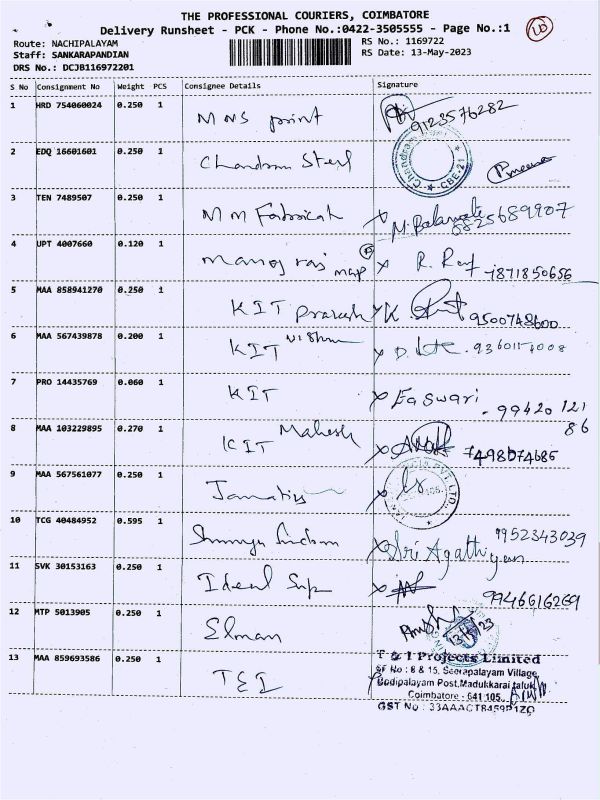 THE PROFESSIONAL COURIERS, COIMBATORE
Delivery Runsheet - PCK - Phone No.:0422-3505555 - Page No.:1
Route: NACHIPALAYAM RS No.: 1169722
Staff: SANKARAPANDIAN RS Date: 13-May-2023
DRS No.: DCJB116972201
S No Consignment No Weight PCS Consignee Details Signature
1 HRD 754060024 0.250 1 MNS point 9123576282
2 EDQ 16601601 0.250 1 Chandram Steel CBE-21
3 TEN 7489507 0.250 1 MM Fabricat M. Balamale 8825689907
4 UPT 4007660 0.120 1 Manoj raj map R. Raj 7871850656
5 MAA 858941270 0.250 1 KIT Prakash K. 9500748600
6 MAA 567439878 0.200 1 KIT Vishnu D.
7 PRO 14435769 0.060 1 KIT Easwari - 99420 121 86
8 MAA 103229895 0.270 1 KIT Mahesh 7498074686
9 MAA 567561077 0.250 1 PVT LTD
10 TCG 40484952 0.595 1 Sri Agathiyan 9952343039
11 SVK 30153163 0.250 1 Ideal Sup 9946616269
12 MTP 5013905 0.250 1 Elman
13 MAA 859693586 0.250 1 TEI
T & I Projects Limited
SF No : 8 & 15, Seerapalayam Village,
Bodipalayam Post, Madukkarai taluk,
Coimbatore - 641 105.
GST No : 33AAACT8459P1ZQ